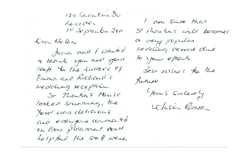 Leicester
1st September 2011
Dear Helen
John and I wanted
to thank you and your
staff for the success of
Emma and Richard's
wedding reception
St Martins House
looked stunning, the
food was delicious
and everyone commented
on how pleasant and
helpful the staff were.
I am sure that
St Martins will become
a very popular
wedding venue due to
your efforts.
Best wishes for
the future
Yours sincerely